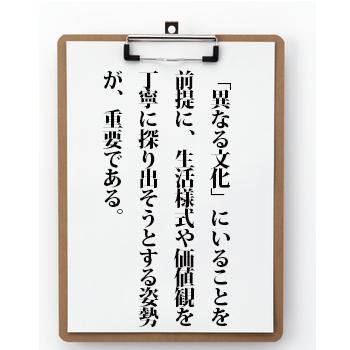 「異なる文化」にいることを
前提に、生活様式や価値観を
丁寧に探り出そうとする姿勢
が、重要である。